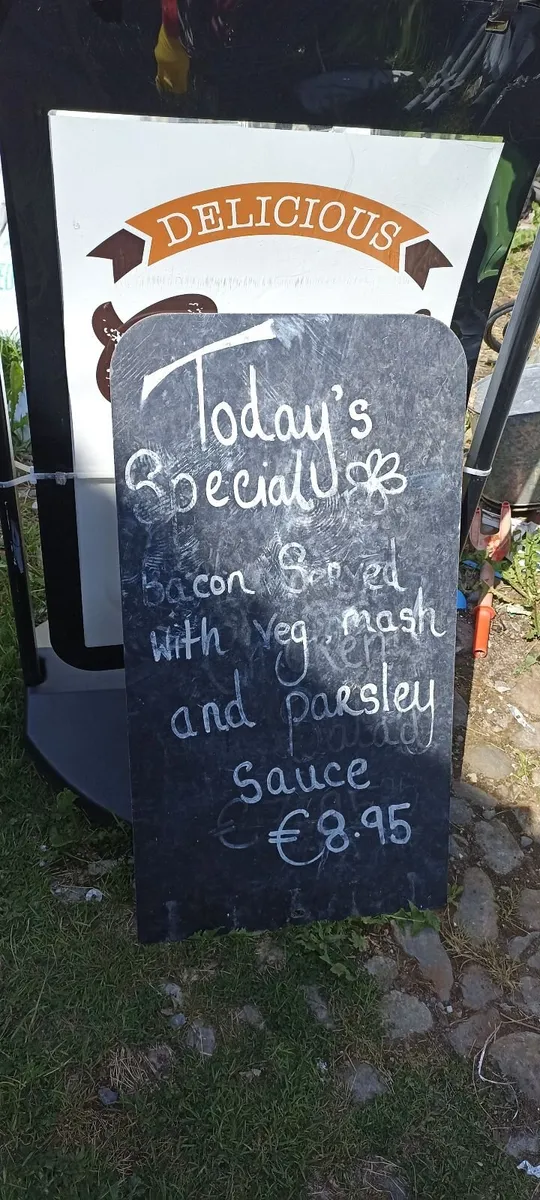 DELICIOUS
Today's
Special
Bacon Served
with veg, mash
and parsley
sauce
€8.95